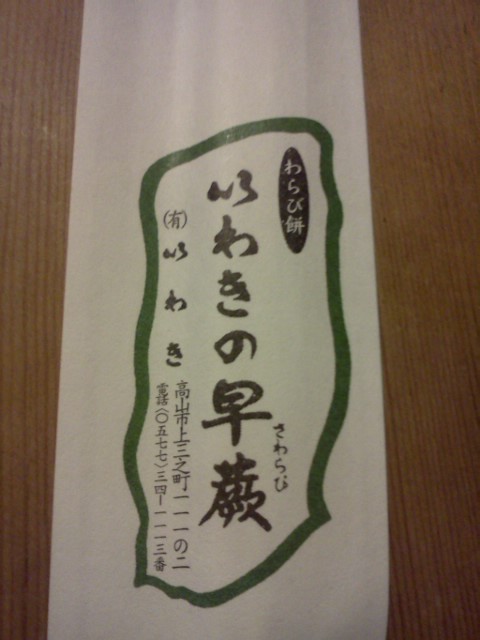 わらび餅
いわきの早蕨
さわらび
㈲いわき
高山市上三之町一一一の二
電話〈〇五七七〉三四ー一一一三番